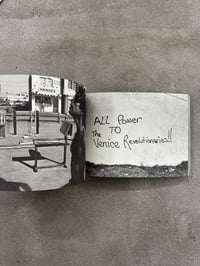 ANNIES
ALL Power
TO
The
Venice Revolutionaries!!